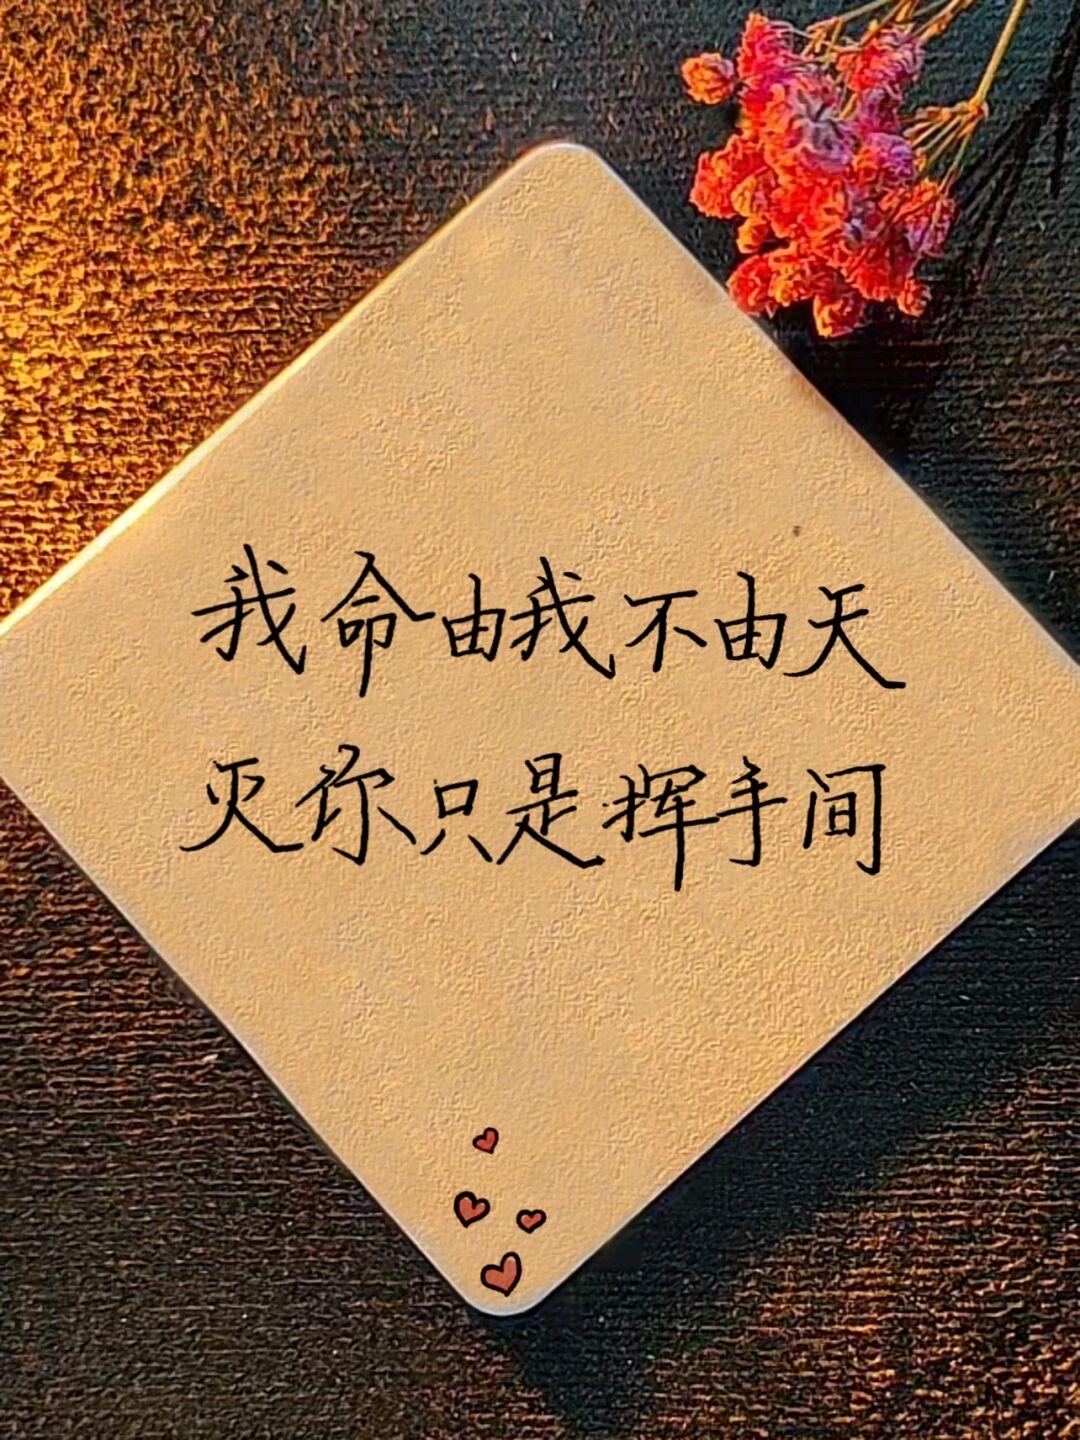 我命由我不由天
灭你只是挥手间